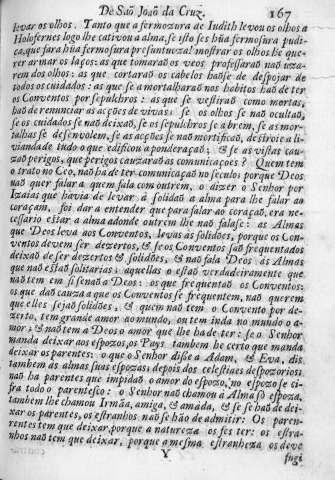 De Saõ Joaõ da Cruz. 167
levar os olhos. Tanto que a fermozura de Iudith levou os olhos a
Holofernes logo lhe cativou a alma, se isto fes hũa fermosura pudi-
ca, que fara hũa fermosura presuntuoza! mostrar os olhos he que-
rer armar os laços: as que tomaraõ os veos professaraõ naõ uza-
rem dos olhos: as que cortaraõ os cabelos haõ se de despojar de
todos os cuidados: as que se amortalharaõ nos habitos haõ de ter
os Conventos por sepulchros: as que se vestiraõ como mortas,
haõ de renunciar as acções de vivas: se os olhos se naõ ocultaõ,
se os cuidados se naõ deixaõ, se os sepulchros se abrem, se as mor-
talhas se desenvolem, se as acções se naõ mortificaõ, destroise a li-
viandade tudo o que edificou a ponderaçaõ; & se as vistas cau-
zaõ perigos, que perigos cauzaraõ as comunicações? Quem tem
o trato no Ceo, naõ ha de ter comunicaçaõ no seculo: porque Deos
naõ quer falar a quem fala com outrem, o dizer o Senhor por
Izaias que havia de levar á solidaõ a alma para lhe falar ao
coraçam, foi dar a entender que para falar ao coraçaõ, era ne-
cessario estar a alma adonde outrem lhe naõ falase: as Almas
que Deos leva aos Conventos, leva as solidões, porque os Con-
ventos devem ser dezertos, & se os Conventos saõ frequentados
deixaõ de ser dezertos & solidões, & naõ fala Deos ás Almas
que naõ estaõ solitarias: aquellas o estaõ verdadeiramente que
naõ tem em si senaõ a Deos: os que frequentaõ os Conventos:
os que daõ cauza a que os Conventos se frequentem, naõ querem
que elles sejaõ solidões, & quem naõ tem o Convento por de-
zerto, tem grande amor ao mundo, ou tem inda no mundo o a-
mor; & naõ tem a Deos o amor que lhe ha de ter: se o Senhor
manda deixar aos espozos, os Pays tambem he certo que manda
deixar os parentes: o que o Senhor disse a Adam, & Eva, dis
tambem as almas suas espozas; depois dos celestiaes despozorios;
naõ ha parentes que impidaõ o amor do espozo, no espozo se ci-
fra todo o parentesco: o Senhor naõ chamou a Alma só espoza,
tambem lhe chamou Irmãa, amiga, & amada, & se se haõ de dei-
xar os parentes, os estranhos, naõ se haõ de admitir: Os paren-
rentes tem que deixar, porque a natureza os fes ter: os estra-
nhos naõ tem que deixar, porque a mesma estranheza os deve
Y fugi-